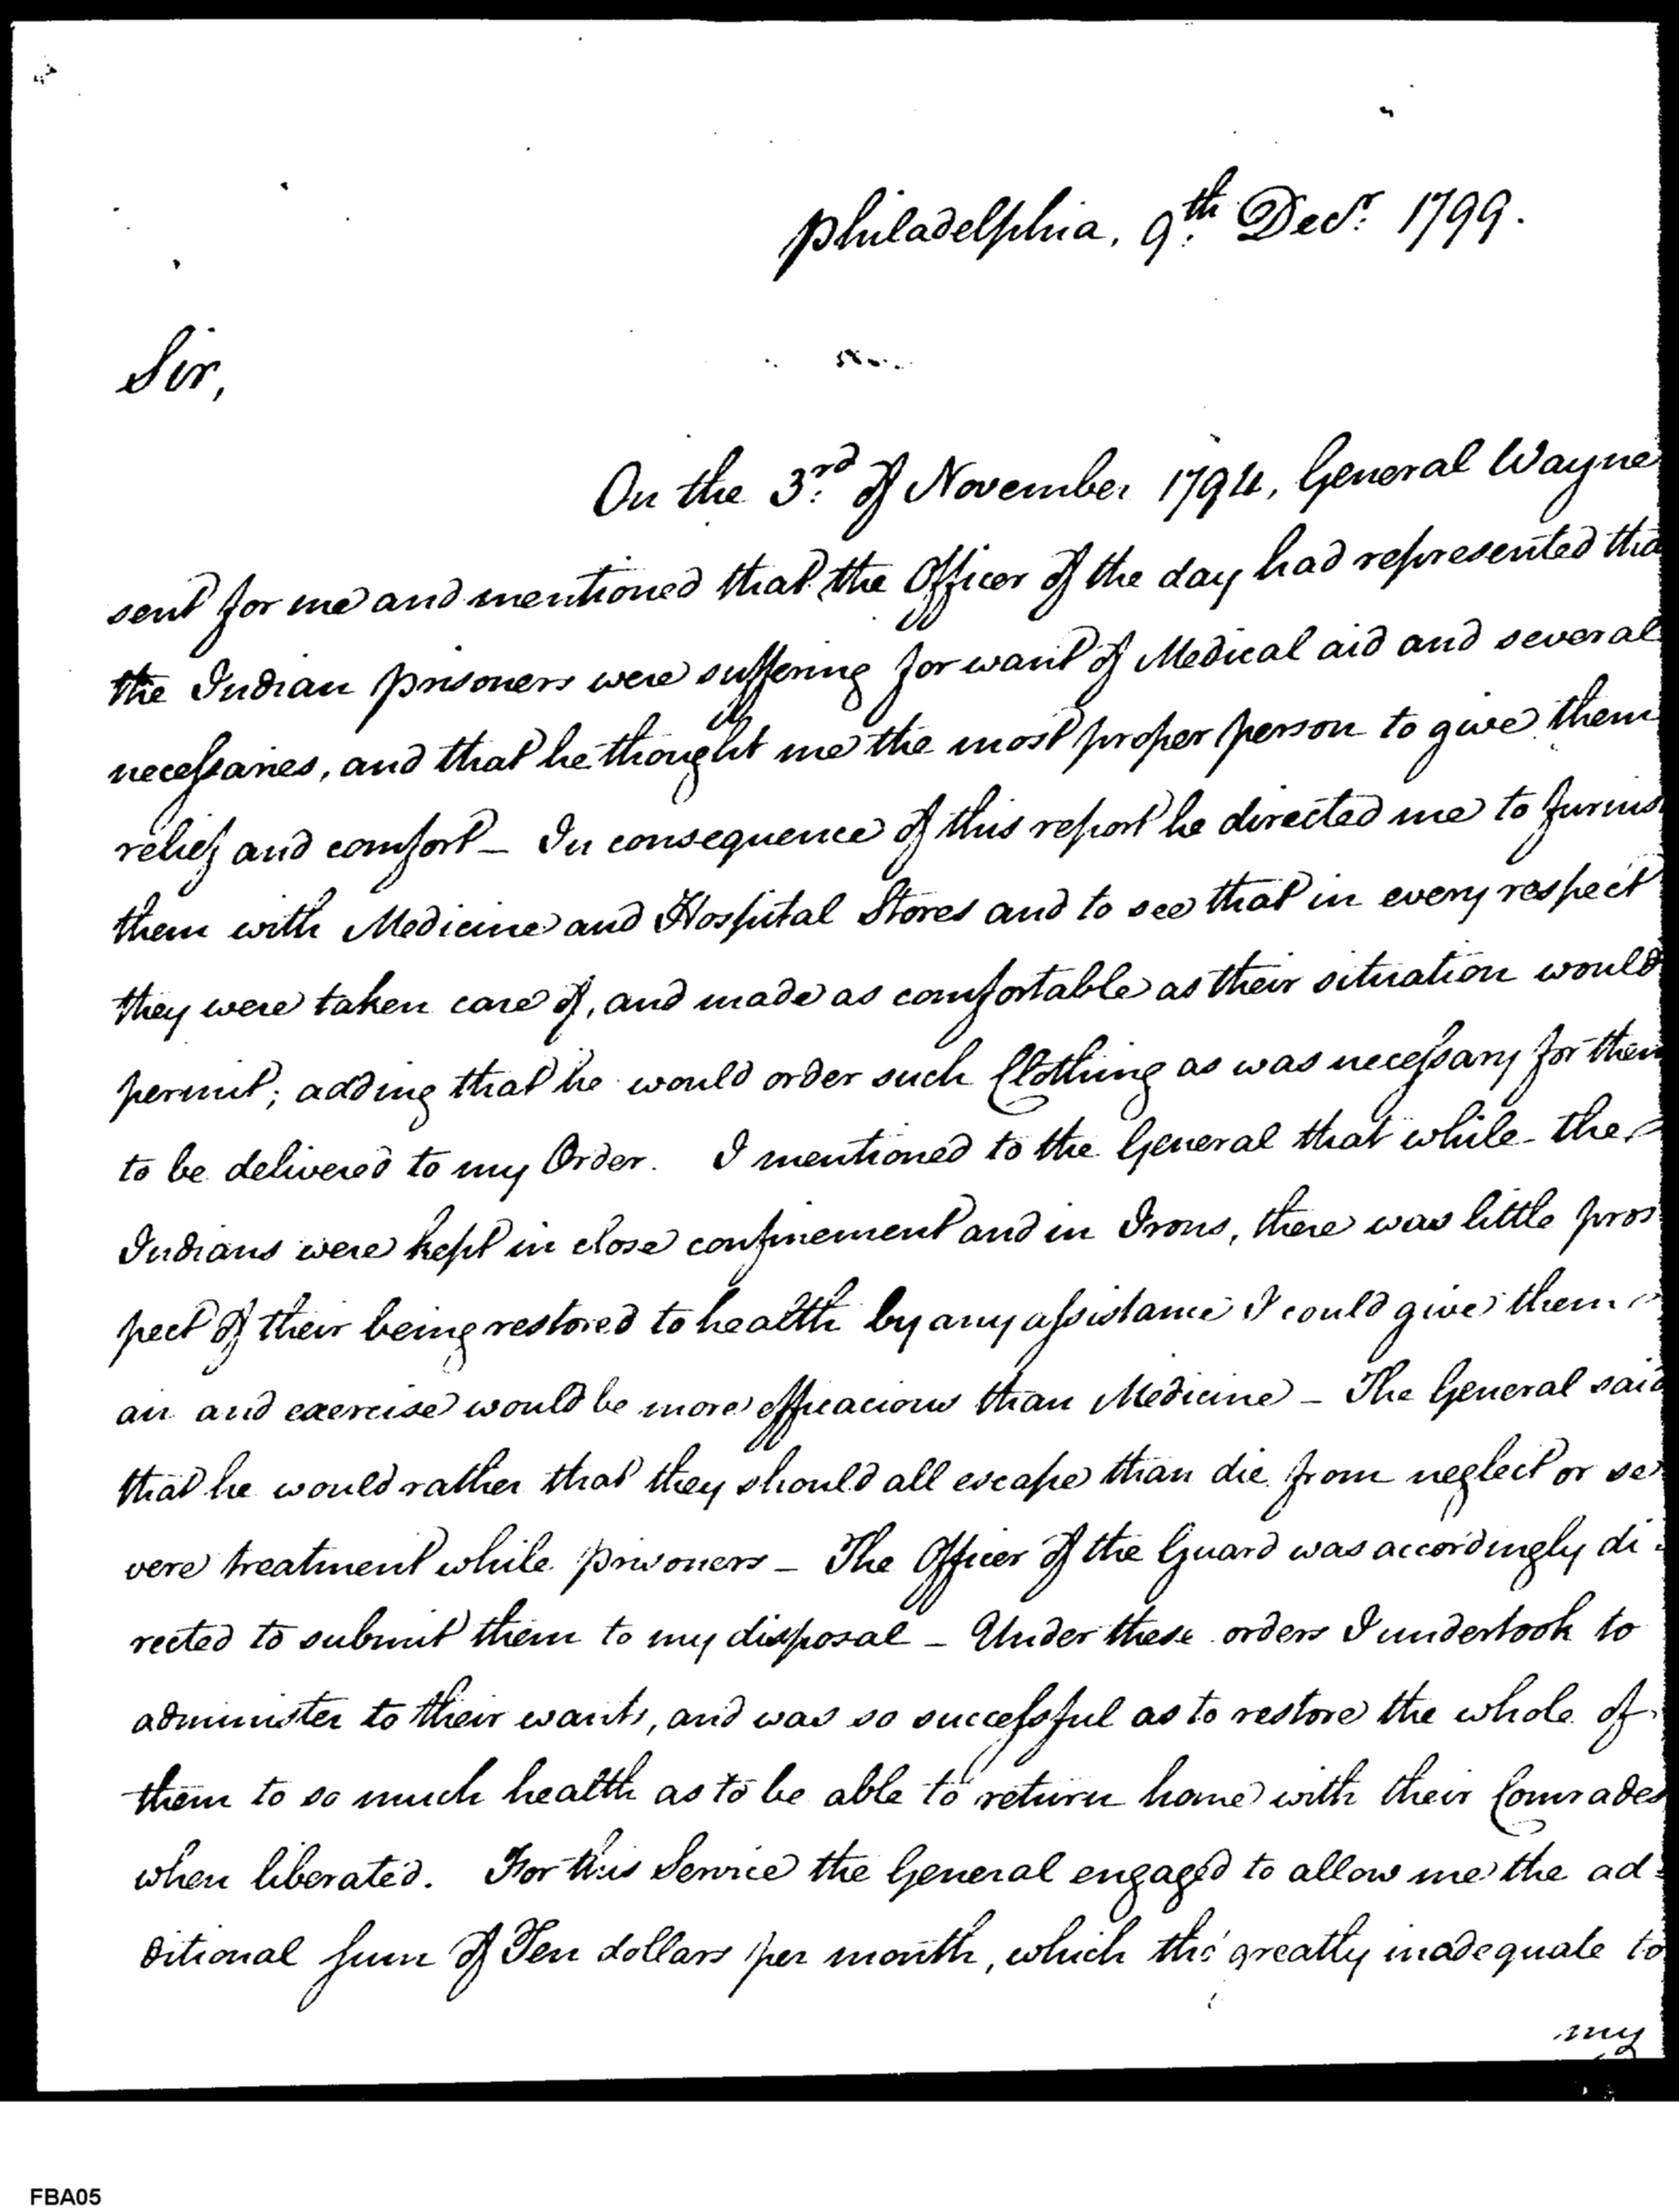 Philadelphia, 9th Decr. 1799.
Sir,
On the 3rd of November 1794, General Wayne
sent for me and mentioned that the Officer of the day had represented tha
the Indian prisoners were suffering for want of Medical aid and several
necessaries, and that he thought me the most proper person to give them
relief and comfort – In consequence of this report he directed me to furnis
them with Medicine and Hospital Stores and to see that in every respect
they were taken care of, and made as comfortable as their situation would
permit; adding that he would order such Clothing as was necessary for them
to be delivered to my Order. I mentioned to the General that while the
Indians were kept in close confinement and in Irons, there was little pros
pect of their being restored to health by any assistance I could give them
air and exercise would be more efficacious than Medicine – The General said
that he would rather that they should all escape than die from neglect or se
vere treatment while prisoners – The Officer of the Guard was accordingly di
rected to submit them to my disposal – Under these orders I undertook to
administer to their wants, and was so successful as to restore the whole of
them to so much health as to be able to return home with their Comrades
when liberated. For this Service the General engaged to allow me the ad
ditional sum of Ten dollars per month, which tho' greatly inadequate to
my
FBA05